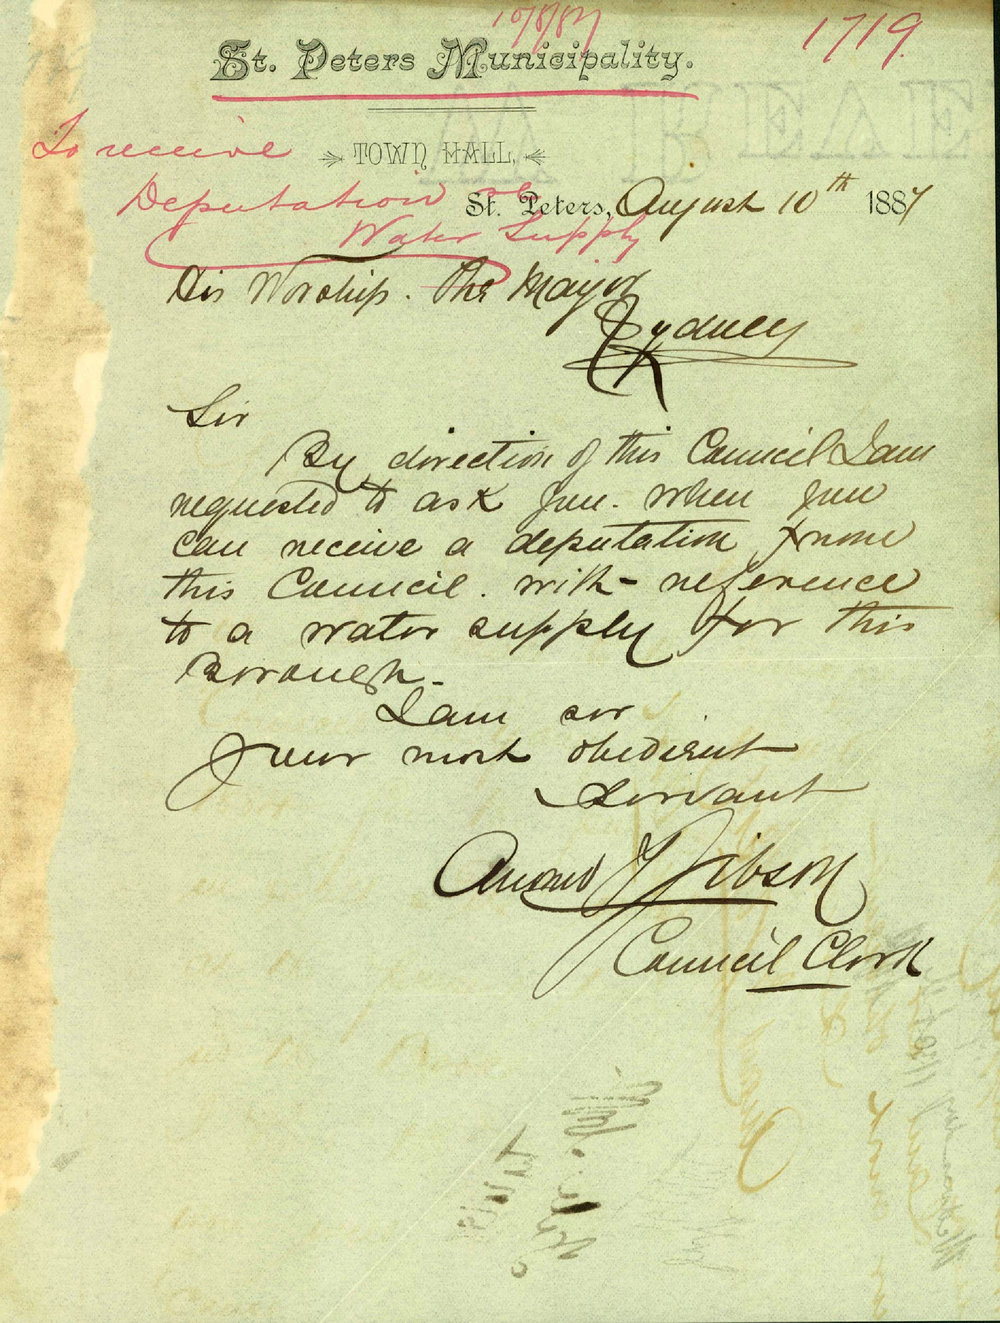 10/8/87
1719
St. Peters Municipality.
To receive
TOWN HALL,
Deputation re
St. Peters, August 10th 1887
Water Supply
His Worship. The Mayor
Sydney
Sir
By direction of this Council I am
requested to ask you. when you
can receive a deputation from
this Council. with reference
to a water supply for this
Borough.-
I am sir
your most obedient
servant
Gibson
Council Clerk